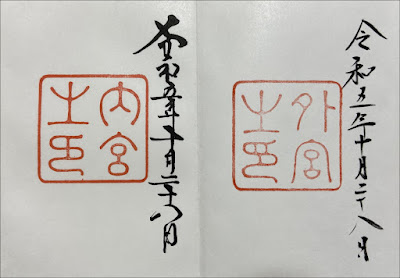 令和五年十月二十八日
外宮
之印
令和五年十月二十八日
内宮
之印